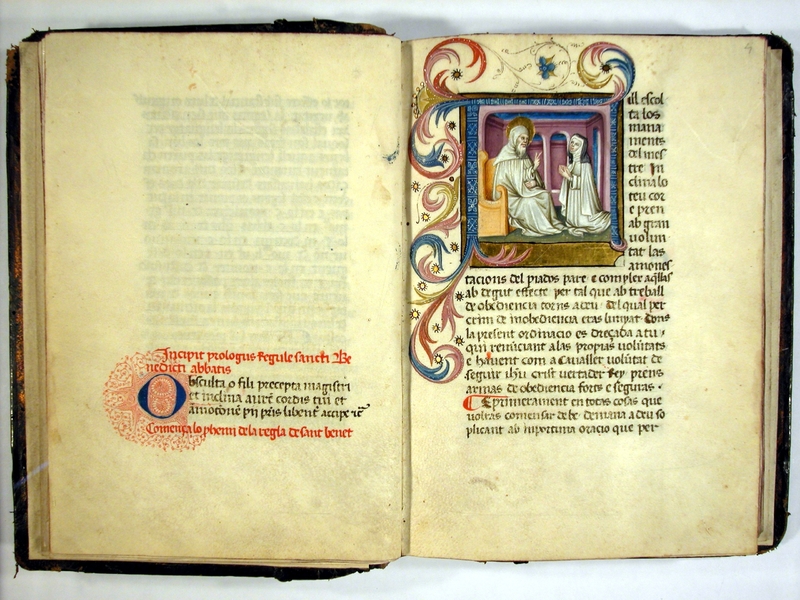 Incipit prologus Regule sancti Be
nedicti abbatis
Obsculta o fili precepta magistri
et inclina aurē cordis tui et
amotionē pii pris libent accipe
Comença lo phemi dela regla de sant benet
ill escol
ta los
mana
ments
del mes
tre In
clina lo
teu cor
e pren
ab gran
volun
tat las
amones
tacions del piados pare e compler aqllas
ab degut effecte per tal que ab treball
de obediencia torns a deu del qual per
crim de inobediencia eras lunyat. Dons
la present ordinacio es dreçada a tu
qui renunciant a las propias volūtats
e havent com a Cavaller volūtat de
seguir ihu crist vertader Rey prens
armas de obediencia forts e seguras.
E primerament en totas cosas que
volras comensar de be demana a deu so
plicant ab inportuna oracio que per